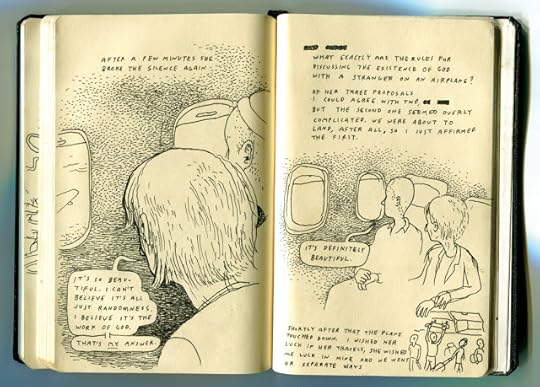 AFTER A FEW MINUTES SHE
BROKE THE SILENCE AGAIN
IT'S SO BEAU-
TIFUL. I CAN'T
BELIEVE IT'S ALL
JUST RANDOMNESS.
I BELIEVE IT'S THE
WORK OF GOD.
THAT'S MY ANSWER.
WHAT EXACTLY ARE THE RULES FOR
DISCUSSING THE EXISTENCE OF GOD
WITH A STRANGER ON AN AIRPLANE?
OF HER THREE PROPOSALS
I COULD AGREE WITH TWO,
BUT THE SECOND ONE SEEMED OVERLY
COMPLICATED. WE WERE ABOUT TO
LAND, AFTER ALL, SO I JUST AFFIRMED
THE FIRST.
IT'S DEFINITELY
BEAUTIFUL.
SHORTLY AFTER THAT THE PLANE
TOUCHED DOWN. I WISHED HER
LUCK IN HER TRAVELS, SHE WISHED
ME LUCK IN MINE AND WE WENT
OR SEPARATE WAYS